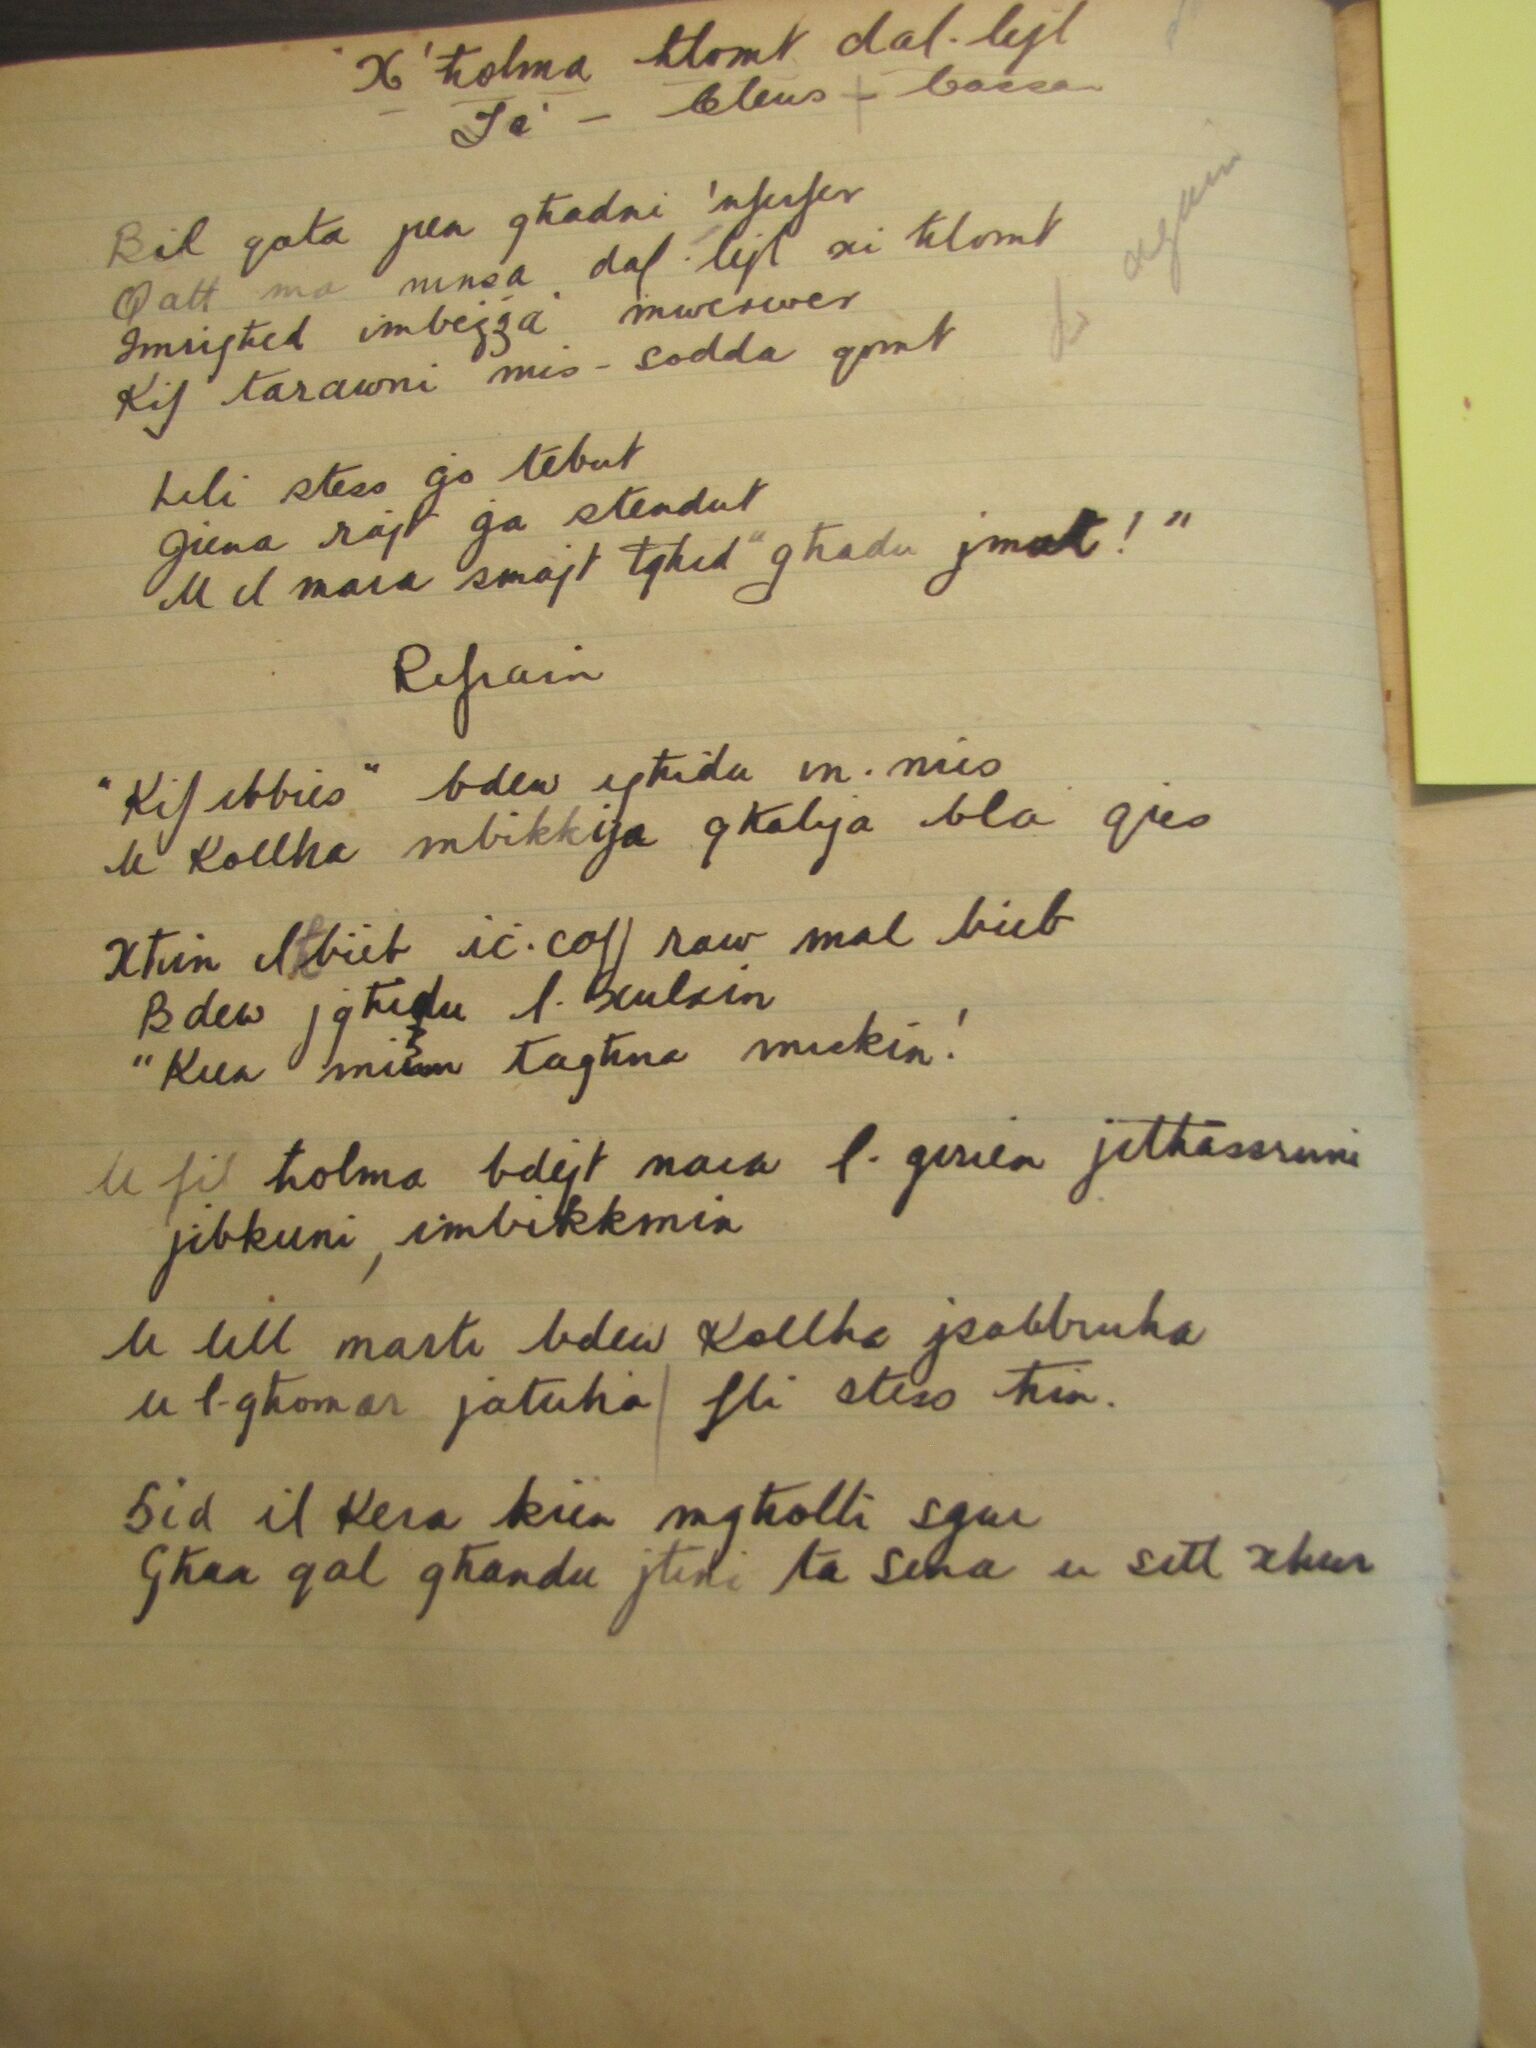 X'ħolma ħlomt dal-lejl
Ta' - Cleus + Cassar
Bil qata jien għadni 'nferfer
Qatt ma ninsa dal-lejl xi ħlomt
Imrigħed imbeżża' inwerwer
Kif tarawni mis-sodda qomt
& again
Lili stess ġo tebut
Jiena rajt ġa stendut
U il mara smajt tgħid "għadu jmut!"
Refrain
"Kif ibbies" bdew igħidu in-nies
U Kollha mbikkija għalija bla qies
Xħin il ħbieb iċ-coff raw mal bieb
Bdew jgħidu l-Bxulxin
"Kien minn tagħna miskin!
U fil ħolma bdejt nara l-ġirien jitħassruni
jibkuni, imbikkmin
U lill marti bdew Kollha jsabbruha
u l-għomor jatuha / fli stess ħin.
Sid il Kera kien mgħolli sgur
Għax qal għandu jtini ta sena u sitt xhur